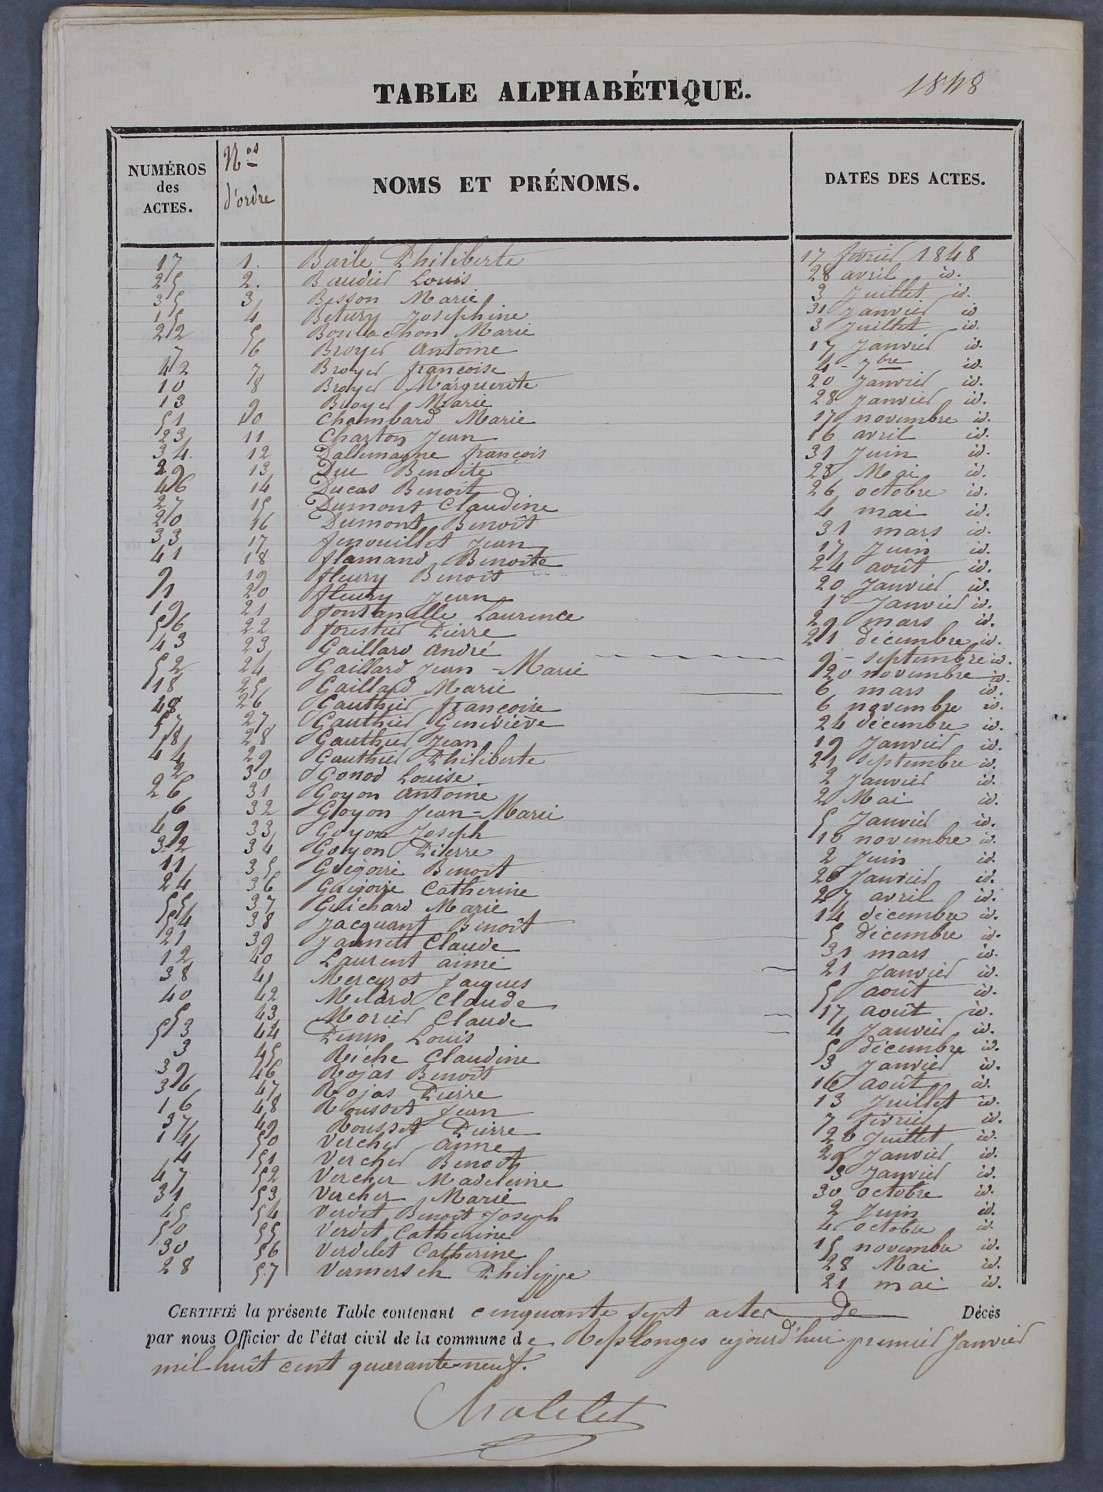 TABLE ALPHABÉTIQUE. 1848
NUMÉROS des ACTES. Nos d'ordre NOMS ET PRÉNOMS. DATES DES ACTES.
17 1. Baile Philiberte 17 février 1848
25 2. Baudier Louis 28 avril id.
35 3 Besson Marie 3 Juillet id.
15 4 Betury Josephine 31 Janvier id
22 5 Boulachon Marie 3 Juillet id.
7 6 Broyer Antoine 17 Janvier id.
42 7 Broyer françoise 4 - 7bre id.
10 8 Broyer Marguerite 20 Janvier id.
13 9 Broyer Marie 28 Janvier id.
51 10 Chambard Marie 17 novembre id.
23 11 Charton Jean 16 avril id.
34 12 Dallemagne françois 31 Juin id.
29 13 Duc Benoite 23 Mai id.
46 14 Ducas Benoit 26 octobre id.
27 15 Dumont Claudine 4 mai id.
20 16 Dumont Benoît 31 mars id.
33 17 fenouillet Jean 17 Juin id.
41 18 flamand Benoîte 24 août id.
9 19 fleury Benoît 20 Janvier id.
1 20 fleury Jean 1er Janvier id.
19 21 fontanelle Laurence 29 mars id.
56 22 forestier Pierre 21 décembre id.
43 23 Gaillard andré 9 - septembre id.
52 24 Gaillard Jean-Marie 20 novembre id.
18 25 Gaillard Marie 6 mars id.
48 26 Gauthier françoise 6 novembre id.
57 27 Gauthier Geneviève 24 décembre id.
8 28 Gauthier Jean 19 Janvier id.
44 29 Gauthier Philiberte 21 septembre id.
2 30 Gonod Louise 2 Janvier id.
26 31 Goyon Antoine 2 Mai id.
6 32 Goyon Jean-Marie 5 Janvier id.
49 33 Goyon Joseph 16 novembre id.
32 34 Goyon Pierre 2 Juin id.
11 35 Grégoire Benoît 20 Janvier id.
24 36 Grégoire Catherine 27 avril id.
55 37 Guichard Marie 14 décembre id.
54 38 Jacquant Benoît 5 décembre id.
21 39 Jannett Claude 31 mars id.
12 40 Laurent aimé 21 Janvier id.
38 41 Jacques 5 août id.
40 42 Claude 17 août id.
5 43 Morier Claude 4 Janvier id.
53 44 Penin Louis 5 décembre id.
3 45 Riche Claudine 3 Janvier id.
39 46 Rojas Benoît 16 août id.
36 47 Rojas Pierre 13 Juillet id.
16 48 Rousset Jean 7 février id.
37 49 Rousset Pierre 20 Juillet id.
14 50 Vercher aimé 29 Janvier id.
4 51 Vercher Benoît 3 Janvier id.
47 52 Vercher Madeleine 30 octobre id.
31 53 Vercher Marie 2 Juin id.
45 54 Verdet Benoît Joseph 4 octobre id.
50 55 Verdet Catherine 15 novembre id.
30 56 Verdelet Catherine 28 Mai id.
28 57 Vermersch Philippe 21 mai id.
CERTIFIÉ la présente Table contenant cinquante sept actes de Décès
par nous Officier de l'état civil de la commune de Replonges aujourd'hui premier Janvier
mil huit cent quarante-neuf.